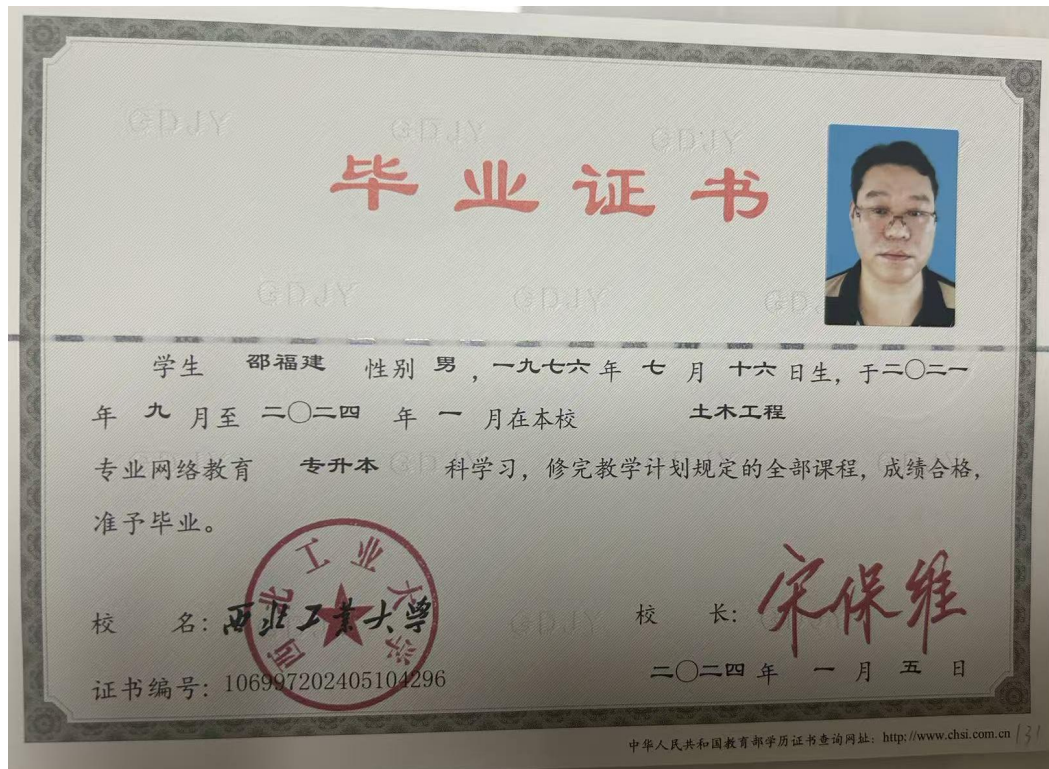 GDJY GDJY GDJY
毕业证书
GDJY GDJY GD
学生 邵福建 性别 男，一九七六 年 七 月 十六 日生，于二〇二一
年 九 月至 二〇二四 年 一 月在本校 土木工程
专业网络教育 专升本 科学习，修完教学计划规定的全部课程，成绩合格，
准予毕业。
西北工业大学
校 名：西北工业大学
校 长：宋保维
证书编号：106997202405104296
二〇二四 年 一 月 五 日
中华人民共和国教育部学历证书查询网址：http://www.chsi.com.cn 131